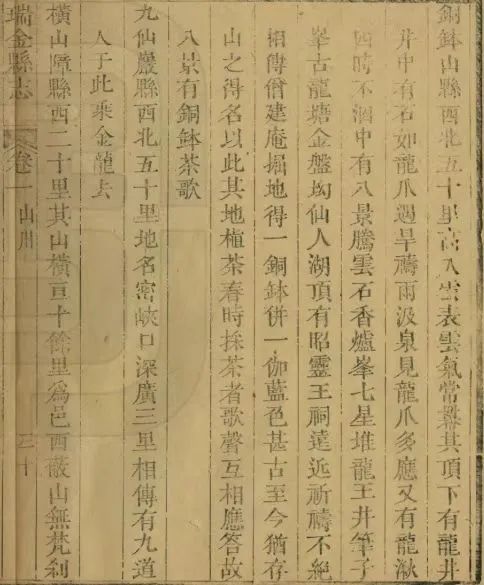 銅鉢山縣西北五十里高入雲表雲氣常羃其頂下有龍井
井中有石如龍爪遇旱禱雨汲泉見龍爪多應又有龍湫
四時不涸中有八景騰雲石香爐峯七星堆龍王井筆子
峯古龍塘金盤㘭仙人湖頂有昭靈王祠遠近祈禱不絕
相傳僧建庵掘地得一銅鉢併一伽藍色甚古至今猶存
山之得名以此其地植茶春時採茶者歌聲互相應答故
八景有銅鉢茶歌
九仙巖縣西北五十里地名密峽口深廣三里相傳有九道
人于此乘金龍去
橫山嶂縣西二十里其山橫亘十餘里爲邑西蔽山無梵刹
瑞金縣志 卷一 山川 三十